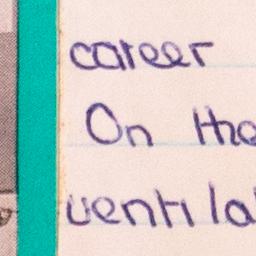 career
On the
ventila